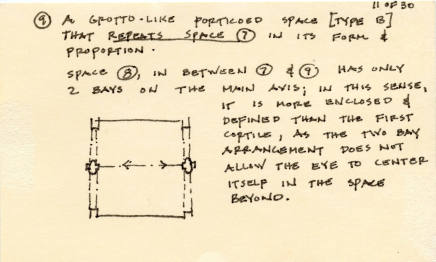 11 OF 30
⑨ A GROTTO-LIKE PORTICOED SPACE [TYPE B]
THAT REPEATS SPACE ⑦ IN ITS FORM &
PROPORTION.
SPACE ⑧, IN BETWEEN ⑦ & ⑨ HAS ONLY
2 BAYS ON THE MAIN AXIS; IN THIS SENSE,
IT IS MORE ENCLOSED &
DEFINED THAN THE FIRST
CORTILE, AS THE TWO BAY
ARRANGEMENT DOES NOT
ALLOW THE EYE TO CENTER
ITSELF IN THE SPACE
BEYOND.